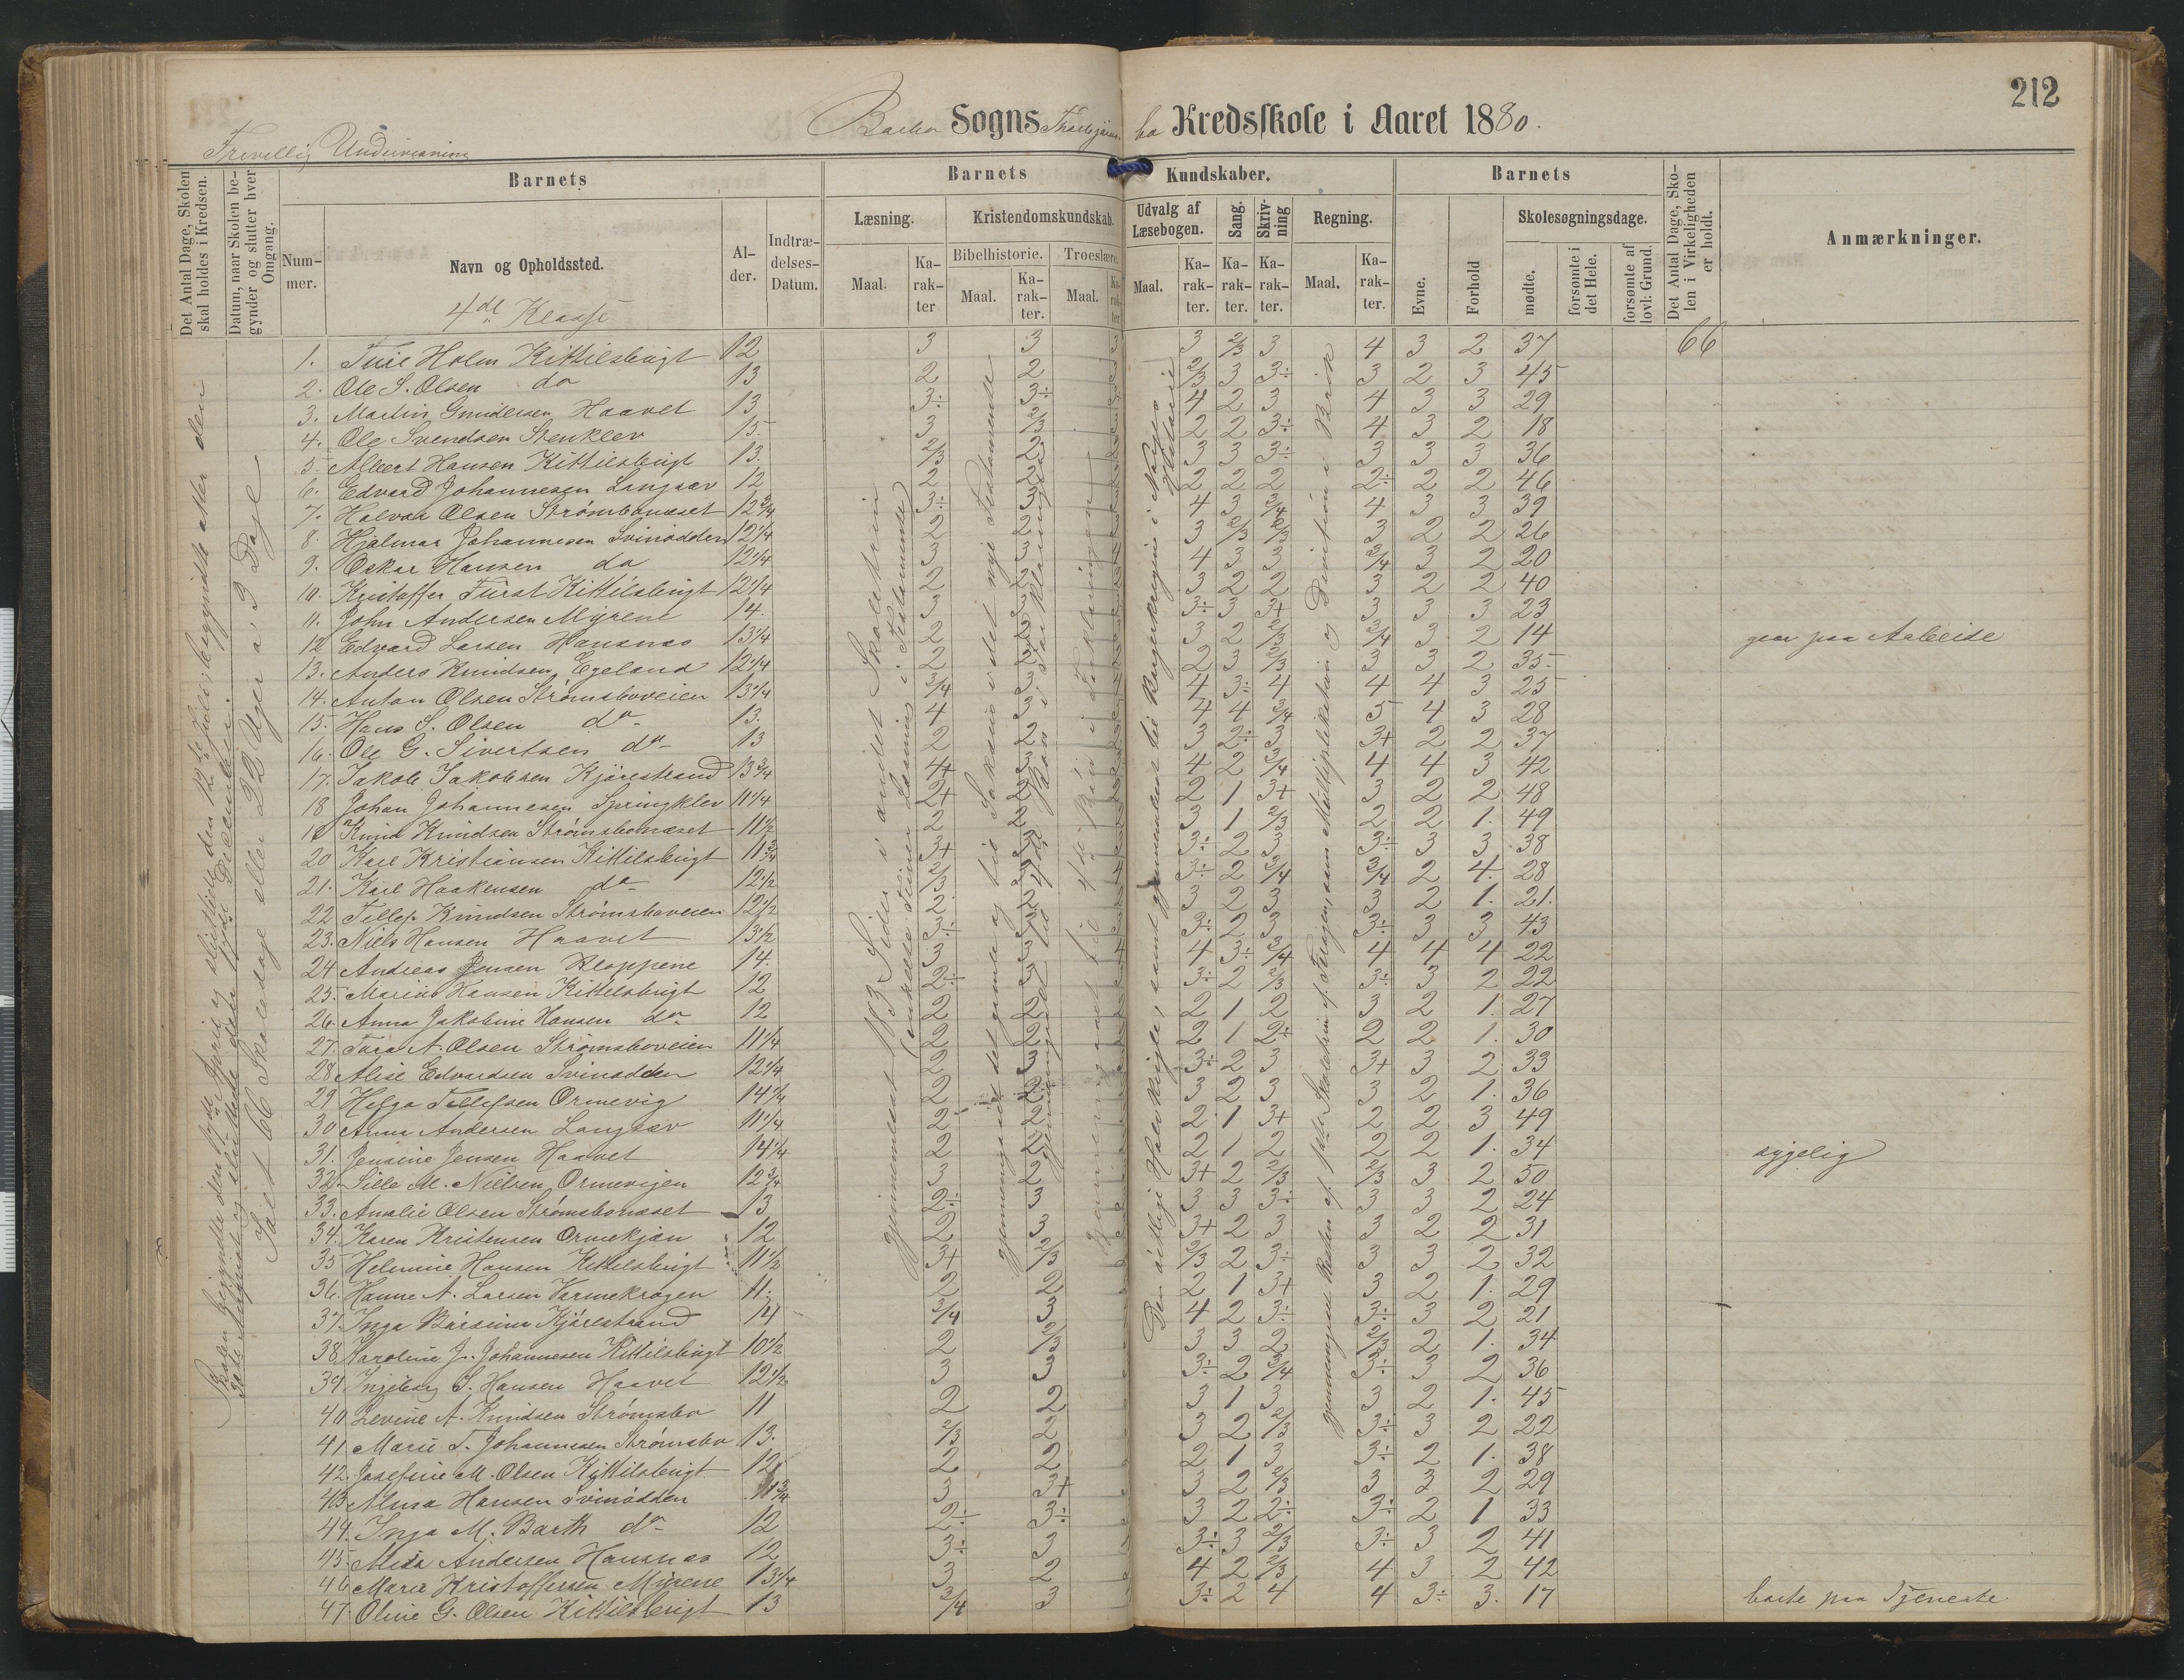 212
Barbo Sogns bo Kredsskole i Aaret 1880.
Frevillig Undervisning
Det Antal Dage, Skolen skal holdes i Kredsen.
Datum, naar Skolen begynder og slutter hver Omgang.
Barnets
Barnets Kundskaber.
Barnets
Det Antal Dage, Skolen i Virkeligheden er holdt.
Anmærkninger.
Nummer.
Navn og Opholdssted.
Alder.
Indtrædelses-Datum.
Læsning.
Kristendomskundskab.
Udvalg af Læsebogen.
Sang.
Skrivning
Regning.
Evne.
Forhold
Skolesøgningsdage.
Bibelhistorie.
Troeslære.
Maal.
Karakter
Maal.
Karakter.
Maal.
Karakter.
Maal.
Karakter.
Karakter.
Karakter.
Maal.
Karakter.
mødte.
forsømte i det Hele.
forsømte af lovl: Grund.
4de Klasse
1. Holm Kittilsbugt 12 3 3 3 3 2/3 3 4 3 2 37 66
2. Ole S. Olsen do 13 2 2 2/3 3 3÷ 3 2 3 45
3. Martin Gundersen Haavet 13 3÷ 3÷ 4 2 3 4 3 3 29
4. Ole Svendsen Stenklev 15 3 2/3 2 2 3÷ 4 3 2 18
5. Albert Hansen Kittilsbugt 13. 2/3 2 3 3 3÷ 3 3 3 36
6. Edvard Johannesen Langsæv 12 2 2 2 2 2 2÷ 2 2 46
7. Halvor Olsen Strømsbonæset 12 3/4 3÷ 3 4 3 3/4 4 3 3 39
8. Hjalmar Johannesen Svinodden 12 1/4 2 2 3 2/3 2/3 3 2 2 26
9. Oskar Hansen do 12 1/4 3 3 4 3 3 3/4 3 2 20
10. Kristoffer Fürst Kittilsbugt 12 1/4 2 2 3 2 2 3 2 2 40
11. John Andersen Myrene 14. 3 3 3÷ 3 3+ 3 3 3 23
12 Edvard Larsen Hansnæs 13 1/4 2 2 3 2 2/3 3/4 3 2 14 gaar paa Arbeide
13. Anders Knudsen, Egeland 12 1/4 2 2 2 3 2/3 3 3 2 35
14. Anton Olsen Strømsboveien 13 1/4 3/4 3 4 3÷ 4 4 4 3 25
15. Hans S. Olsen do 13. 4 3 4 4 3/4 5 4 3 28
16. Ole G. Sivertsen do 13 2 2 3 2÷ 3 3+ 2 2 37
17. Jakob Jakobsen Kjørestrand 13 3/4 4+ 3 4 2 3/4 4 4 3 42
18 Johan Johannesen Springklev 11 1/4 2+ 2 2 1 3+ 3 2 2 48
19 Knud Knudsen Strømsbonæset 11 1/2 2 2 3 1 2/3 2 2 1. 49
20 Karl Kristiansen Kittilsbugt 11 3/4 3+ 3 3÷ 2 3 3÷ 3 3 38
21. Karl Haakensen do 12 1/2 2/3 3÷ 2 3/4 3/4 2 4. 28
22 Tellef Knudsen Strømsboveien 12 1/2 2 2 3 2 3 3 2 1. 21.
23. Niels Hansen Haavet 13 1/2 3÷ 3 3÷ 2 3 3÷ 3 3 43
24 Andreas Jensen Kloppene 14. 3 3 4 3÷ 3/4 4 4 4 22
25. Marius Hansen Kittelsbugt 12 2÷ 3 3÷ 2 2/3 3÷ 3 2 22
26. Anna Jakobine Hansen do 12 2 2 2 1 2 3 2 1. 27
27. Tora A. Olsen Strømsboveien 11 1/4 2 2 2 1 2+ 2 2 1. 30
28 Alise Edvardsen Svinodden 12 1/4 2 3 3÷ 2 3 3+ 3 2 33
29 Helga Tellefsen Ormevig 14 1/4 2 2 3 2 3 3 2 1. 36
30 Anna Andersen Langsæv 11 1/4 2 2 2 1 3+ 2 2 3 49
31. Jensine Jensen Haavet 14 1/4 2 2 2 1 2 2 2 1. 34 sygelig
32 Sille M. Nielsen Ormevigen 12 3/4 3 2 3+ 2 2/3 2/3 3 2 50
33. Amalie Olsen Strømsbonæset 13 2÷ 3 3 3 3÷ 3 3 2 24
34. Karen Kristensen Ormekjær 12 2 3 3+ 2 3 3 2 2 31
35 Helmine Hansen Kittilsbugt 11 1/2 3+ 2/3 2/3 2 3÷ 3 3 2 32
36. Hanne A. Larsen Varmekrogen 11. 2 2 2 1 3+ 3 2 1. 29
37. Inga Kjørestrand 14 3/4 3 4 2 3÷ 3÷ 3 2 21
38 Karoline J. Johannesen Kittilsbugt 10 1/2 2 2/3 3 3 2 2/3 2 1. 34
39 Ingeborg S. Hansen Haavet 12 1/2 3 3 3÷ 2 3/4 3÷ 3 2 36
40 Levine A. Knudsen Strømsbo 11 2 2 3 1 3 3 2 1. 45
41. Marie T. Johannesen Strømsbo 13. 2/3 2 3 2 2/3 3÷ 3 2 22
42. Josefine M. Olsen Kittilsbugt 12 2 2 2 1 3 3÷ 2 1. 38
43. Alma Hansen Svinodden 11 3/4 3 3+ 3 2 2/3 3 3 2 29
44. Inga M. Barth do 12 2÷ 3÷ 3 2 2÷ 3÷ 2 1 33
45. Andersen Hansnæs 12 3÷ 3 3÷ 3 2/3 3÷ 3 2 41
46 Maria Kristoffersen Myrene 13 1/4 3 2 4 2 2/3 4 3 2 42
47. Oline G. Olsen Kittilsbugt 13 3/4 3 3÷ 2 4 4 3÷ 3. 17 borte paa Tjeneste
Ialt 66 Skoledage eller 22 Uger a' 3 Dage
gjennemlæst 183 Sider i andet Skoletrin